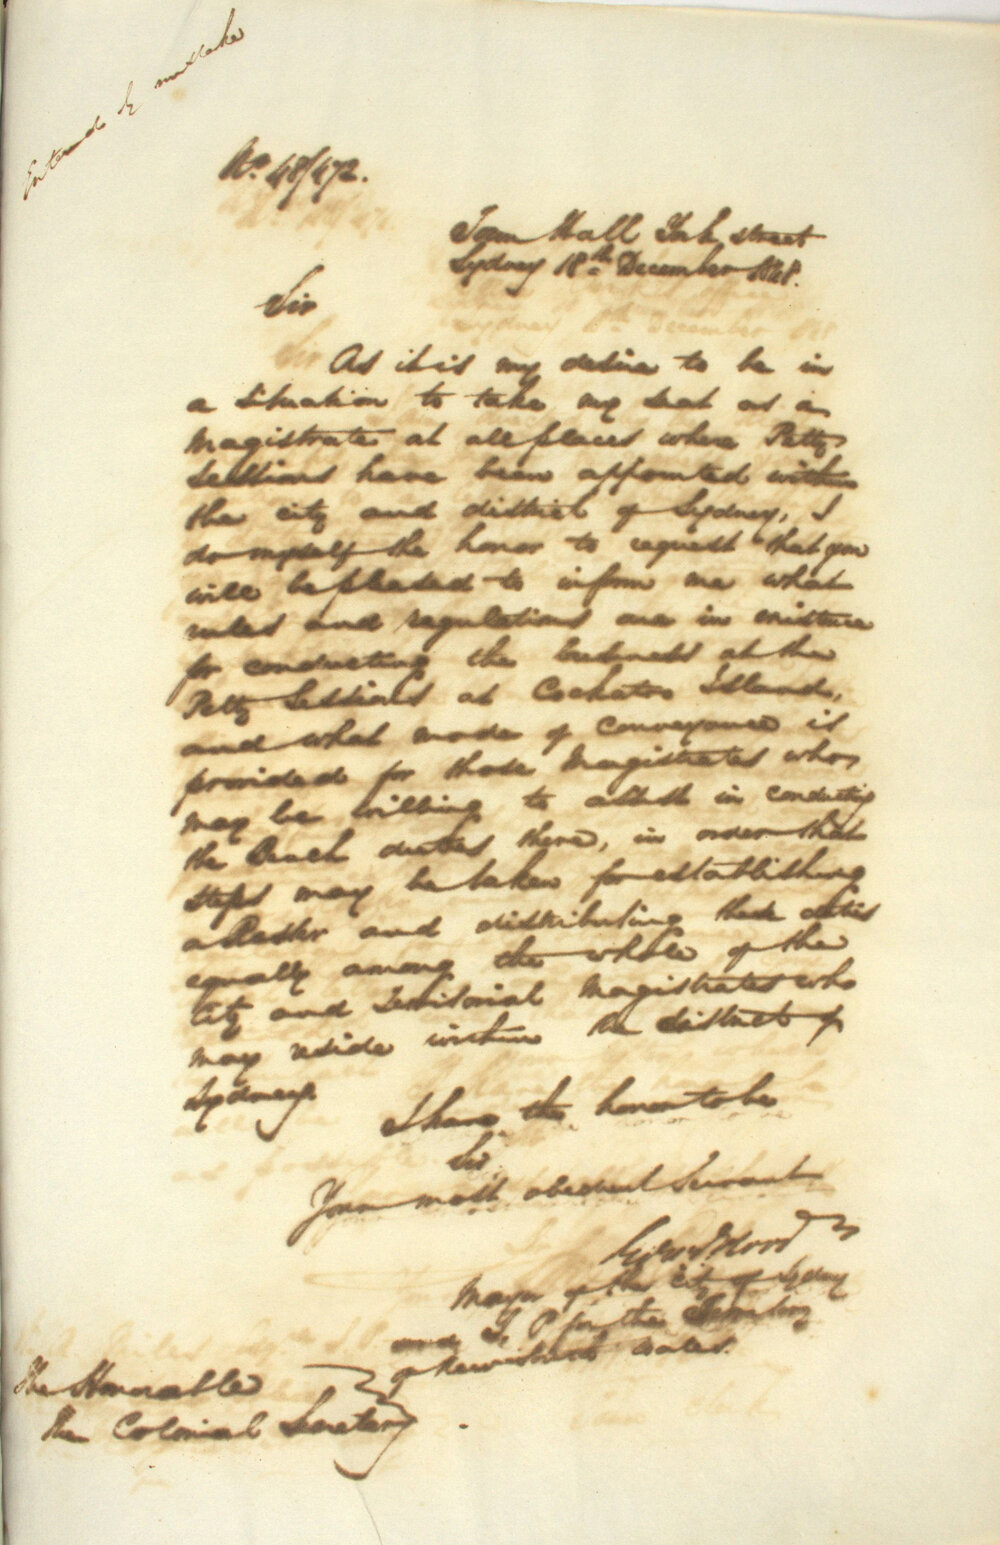 Entered by mistake
No. 48/472.
Town Hall York street
Sydney 18th December 1848.
Sir
As it is my desire to be in
a situation to take my seat as a
Magistrate at all places where Petty
Sessions have been appointed within
the city and district of Sydney, I
do myself the honor to request that you
will be pleased to inform me what
rules and regulations are in existence
for conducting the business at the
Petty Sessions at Cockatoo Island,
and what mode of conveyance is
provided for those Magistrates who
may be willing to assist in conducting
the Bench duties there, in order that
steps may be taken for establishing
a Roster and distributing these duties
equally among the whole of the
City and Territorial Magistrates who
may reside within the district of
Sydney.
I have the honor to be
Sir
Your most obedient Servant
Mayor of the City of Sydney
and J. P. for the Territory
of New South Wales.
The Honorable
The Colonial Secretary